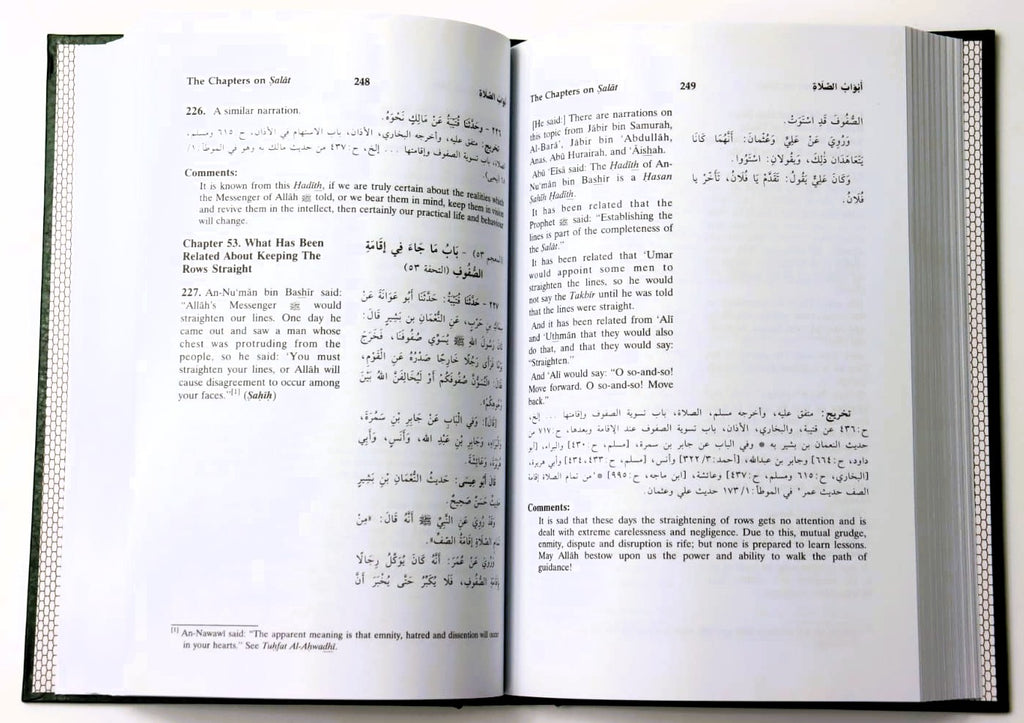 The Chapters on Ṣalāt
248
أبواب الصلاة
226. A similar narration.
٢٢٦ - وَحَدَّثَنَا قُتَيْبَةُ عَنْ مَالِكٍ نَحْوَهُ.
تخريج: متفق عليه، وأخرجه البخاري، الأذان، باب الاستهام في الأذان، ح: ٦١٥ ومسلم،
باب تسوية الصفوف وإقامتها ... إلخ، ح: ٤٣٧ من حديث مالك به وهو في الموطأ: ١/
Comments:
It is known from this Hadīth, if we are truly certain about the realities which
the Messenger of Allāh ﷺ told, or we bear them in mind, keep them in vision
and revive them in the intellect, then certainly our practical life and behaviour
will change.
Chapter 53. What Has Been
Related About Keeping The
Rows Straight
(المعجم ٥٣) - بَابُ مَا جَاءَ فِي إِقَامَةِ
الصُّفُوفِ (التحفة ٥٣)
227. An-Nu'mān bin Bashīr said:
"Allāh's Messenger ﷺ would
straighten our lines. One day he
came out and saw a man whose
chest was protruding from the
people, so he said: 'You must
straighten your lines, or Allāh will
cause disagreement to occur among
your faces."[1] (Ṣaḥīḥ)
٢٢٧ - حَدَّثَنَا قُتَيْبَةُ: حَدَّثَنَا أَبُو عَوَانَةَ عَنْ
بْنِ حَرْبٍ، عَنِ النُّعْمَانِ بْنِ بَشِيرٍ قَالَ:
كَانَ رَسُولُ اللهِ ﷺ يُسَوِّي صُفُوفَنَا، فَخَرَجَ
يَوْمًا فَرَأَى رَجُلًا خَارِجًا صَدْرُهُ عَنِ الْقَوْمِ،
فَقَالَ: لَتُسَوُّنَّ صُفُوفَكُمْ أَوْ لَيُخَالِفَنَّ اللهُ بَيْنَ
وُجُوهِكُمْ».
[قَالَ]: وَفِي الْبَابِ عَنْ جَابِرِ بْنِ سَمُرَةَ،
وَالْبَرَاءِ، وَجَابِرِ بْنِ عَبْدِ اللهِ، وَأَنَسٍ، وَأَبِي
هُرَيْرَةَ، وَعَائِشَةَ.
قَالَ أَبُو عِيسَى: حَدِيثُ النُّعْمَانِ بْنِ بَشِيرٍ
حَدِيثٌ حَسَنٌ صَحِيحٌ.
وَقَدْ رُوِيَ عَنِ النَّبِيِّ ﷺ أَنَّهُ قَالَ: «مِنْ
تَمَامِ الصَّلَاةِ إِقَامَةُ الصَّفِّ».
وَرُوِيَ عَنْ عُمَرَ: أَنَّهُ كَانَ يُوَكِّلُ رِجَالًا
بِإِقَامَةِ الصُّفُوفِ، فَلَا يُكَبِّرُ حَتَّى يُخْبَرَ أَنَّ
[1] An-Nawawī said: "The apparent meaning is that emnity, hatred and dissention will occur
in your hearts." See Tuḥfat Al-Aḥwadhī.
The Chapters on Ṣalāt
249
أبواب الصلاة
[He said:] There are narrations on
this topic from Jābir bin Samurah,
Al-Barā', Jābir bin 'Abdullāh,
Anas, Abū Hurairah, and 'Āishah.
Abū 'Eīsā said: The Ḥadīth of An-
Nu'mān bin Bashīr is a Hasan
Ṣaḥīḥ Ḥadīth.
It has been related that the
Prophet ﷺ said: "Establishing the
lines is part of the completeness of
the Ṣalāt."
It has been related that 'Umar
would appoint some men to
straighten the lines, so he would
not say the Takbīr until he was told
that the lines were straight.
And it has been related from 'Alī
and 'Uthmān that they would also
do that, and that they would say:
"Straighten."
And 'Alī would say: "O so-and-so!
Move forward. O so-and-so! Move
back."
الصُّفُوفَ قَدِ اسْتَوَتْ.
وَرُوِيَ عَنْ عَلِيٍّ وَعُثْمَانَ: أَنَّهُمَا كَانَا
يَتَعَاهَدَانِ ذَلِكَ، وَيَقُولَانِ: اسْتَوُوا.
وَكَانَ عَلِيٌّ يَقُولُ: تَقَدَّمْ يَا فُلَانُ، تَأَخَّرْ يَا
فُلَانُ.
تخريج: متفق عليه، وأخرجه مسلم، الصلاة، باب تسوية الصفوف وإقامتها ... إلخ،
ح: ٤٣٦ عن قتيبة، والبخاري، الأذان، باب تسوية الصفوف عند الإقامة وبعدها، ح: ٧١٧ من
حديث النعمان بن بشير به * وفي الباب عن جابر بن سمرة، [مسلم، ح: ٤٣٠] والبراء، [أبو
داود، ح: ٦٦٤] وجابر بن عبدالله، [أحمد: ٣/ ٣٢٢] وأنس، [مسلم، ح: ٤٣٣، ٤٣٤] وأبي هريرة،
[البخاري، ح: ٦١٥ ومسلم، ح: ٤٣٧] وعائشة، [ابن ماجه، ح: ٩٩٥] * "من تمام الصلاة إقامة
الصف حديث عمر" في الموطأ: ١/ ١٧٣ حديث علي وعثمان.
Comments:
It is sad that these days the straightening of rows gets no attention and is
dealt with extreme carelessness and negligence. Due to this, mutual grudge,
enmity, dispute and disruption is rife; but none is prepared to learn lessons.
May Allāh bestow upon us the power and ability to walk the path of
guidance!